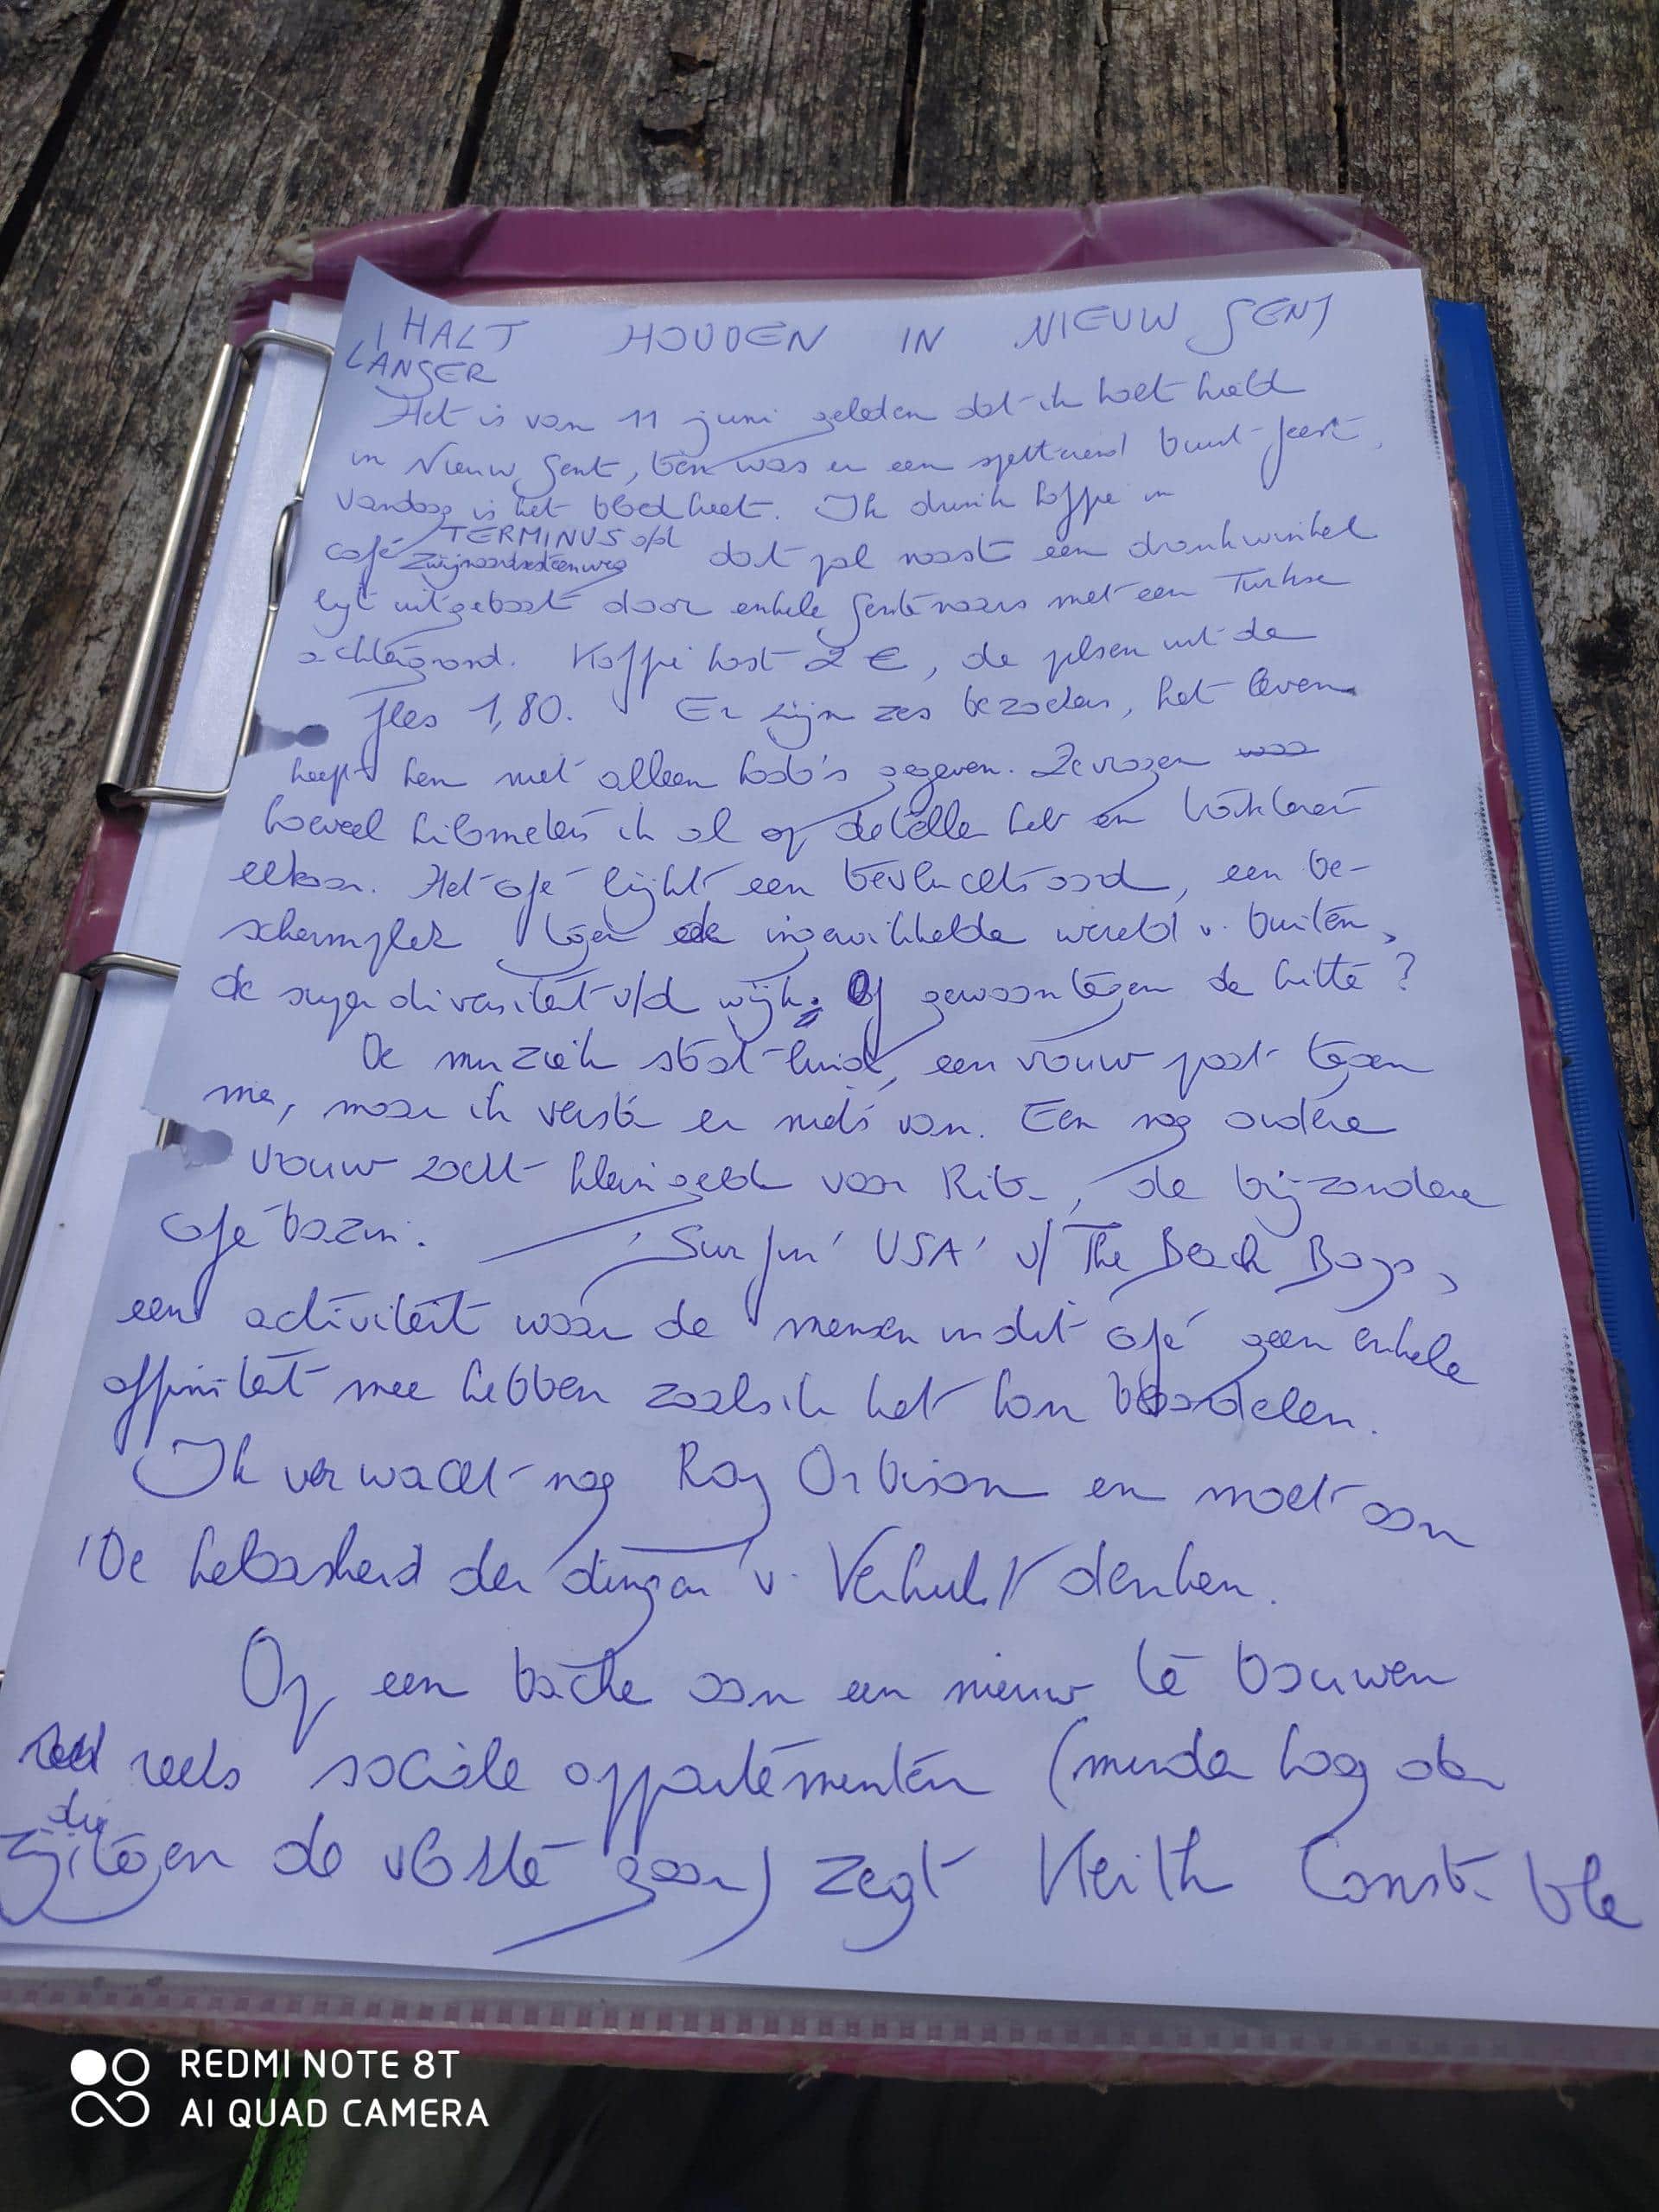 HALT HOUDEN IN NIEUW GENT
LANGER
Het is van 11 juni geleden dat ik halt hield
in Nieuw Gent, toen was er een spetterend buurtfeest,
vandaag is het bloedheet. Ik drink koffie in
café TERMINUS o/d
Zwijnaardsesteenweg dat pal naast een drankwinkel
ligt uitgebaat door enkele Gentenaars met een Turkse
achtergrond. Koffie kost 2 €, de pilsen uit de
fles 1,80. Er zijn zes bezoekers, het leven
heeft hen niet alleen kado's gegeven. Ze vragen
hoeveel kilometers ik al op de teller heb en
elkaar. Het café lijkt een toevluchtsoord, een be-
schermplek tegen de ingewikkelde wereld v. buiten,
de superdiversiteit v/d wijk. Of gewoon tegen de hitte?
De muziek staat luid, een vrouw praat tegen
me, maar ik versta er niets van. Een nog oudere
vrouw zoekt kleingeld voor Rita, de bijzondere
cafébazin. 'Surfin' USA' v/ The Beach Boys,
een activiteit waar de mensen in dit café geen enkele
affiniteit mee hebben zoals ik het kan beoordelen.
Ik verwacht nog Roy Orbison en moet aan
'De helaasheid der dingen' v. Verhulst denken.
Op een bache aan een nieuw te bouwen
reeks sociale appartementen (minder hoog dan
die
zij tegen de vlakte gaan) zegt Keith Constable
REDMI NOTE 8T
AI QUAD CAMERA